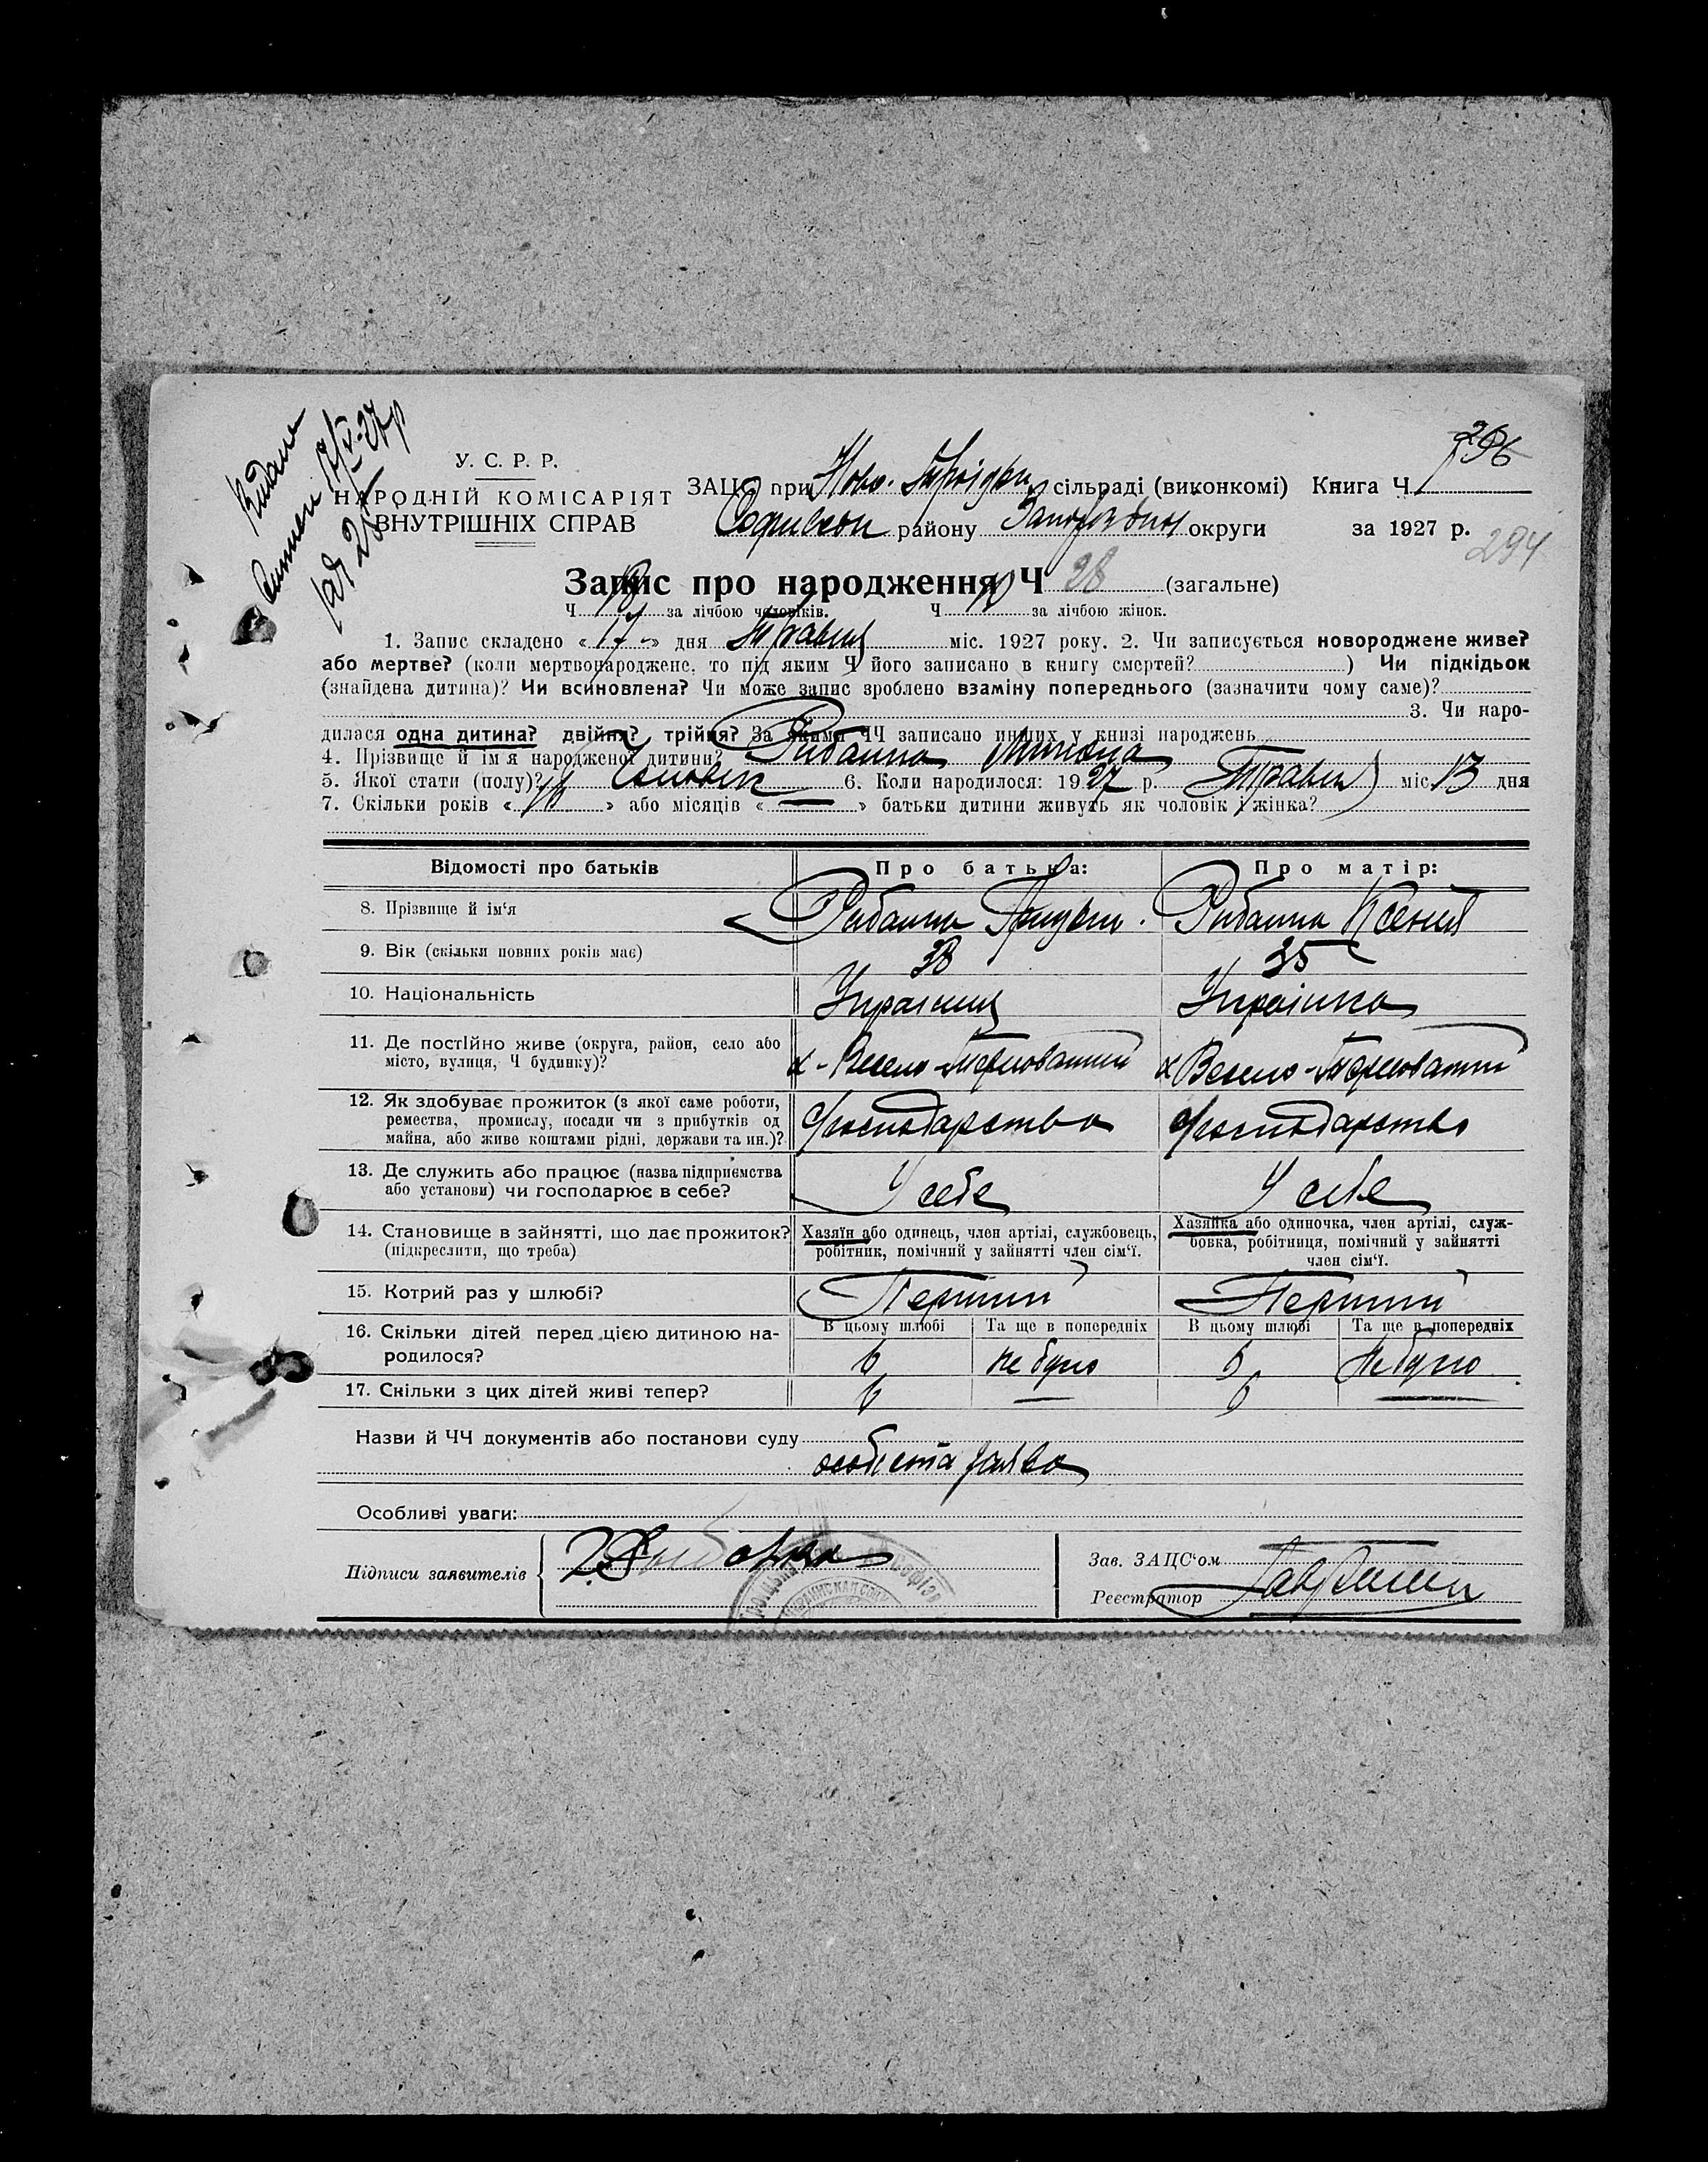 Видана
Витяг 17/V-27р
за 28
296
У. С. Р. Р.
НАРОДНІЙ КОМІСАРІЯТ
ВНУТРІШНІХ СПРАВ
ЗАЦС при Ново-                сільраді (виконкомі) Книга Ч. 1
Софивськ району Запорізької округи за 1927 р.
294
Запис про народження Ч 28 (загальне)
Ч 18 за лічбою чоловіків. Ч 10 за лічбою жінок.
1. Запис складено « 17 » дня Травня міс. 1927 року. 2. Чи записується новороджене живе?
або мертве? (коли мертвонароджене, то під яким Ч його записано в книгу смертей? ) Чи підкідьок
(знайдена дитина)? Чи всиновлена? Чи може запис зроблено взаміну попереднього (зазначити чому саме)?
3. Чи наро-
дилася одна дитина? двійня? трійня? За якими ЧЧ записано инших у книзі народжень
4. Прізвище й ім'я народженої дитини? Рибалка Микола
5. Якої стати (полу)? Чоловік 6. Коли народилося: 1927 р. Травня міс 13 дня
7. Скільки років « 16 » або місяців « — » батьки дитини живуть як чоловік і жінка?
Відомості про батьків Про батька: Про матір:
8. Прізвище й ім'я Рибалка Рибалка Ксенія
9. Вік (скільки повних років має) 38 35
10. Національність Українець Українка
11. Де постійно живе (округа, район, село або
місто, вулиця, Ч будинку)? х-Весело-Терноватий х Весело-Терноватий
12. Як здобуває прожиток (з якої саме роботи,
ремества, промислу, посади чи з прибутків од
майна, або живе коштами рідні, держави та ин.)? Господарство Господарство
13. Де служить або працює (назва підприємства
або установи) чи господарює в себе? У себе У себе
14. Становище в зайнятті, що дає прожиток?
(підкреслити, що треба)
Хазяїн або одинець, член артілі, службовець,
робітник, помічний у зайнятті член сім'ї.
Хазяйка або одиночка, член артілі, служ-
бовка, робітниця, помічний у зайнятті
член сім'ї.
15. Котрий раз у шлюбі? Перший Перший
В цьому шлюбі Та ще в попередніх В цьому шлюбі Та ще в попередніх
16. Скільки дітей перед цією дитиною на-
родилося? 6 не було 6 не було
17. Скільки з цих дітей живі тепер? 6 — 6 —
Назви й ЧЧ документів або постанови суду
особіста заява
Особливі уваги:
Підписи заявителів
Зав. ЗАЦС'ом
Реєстратор